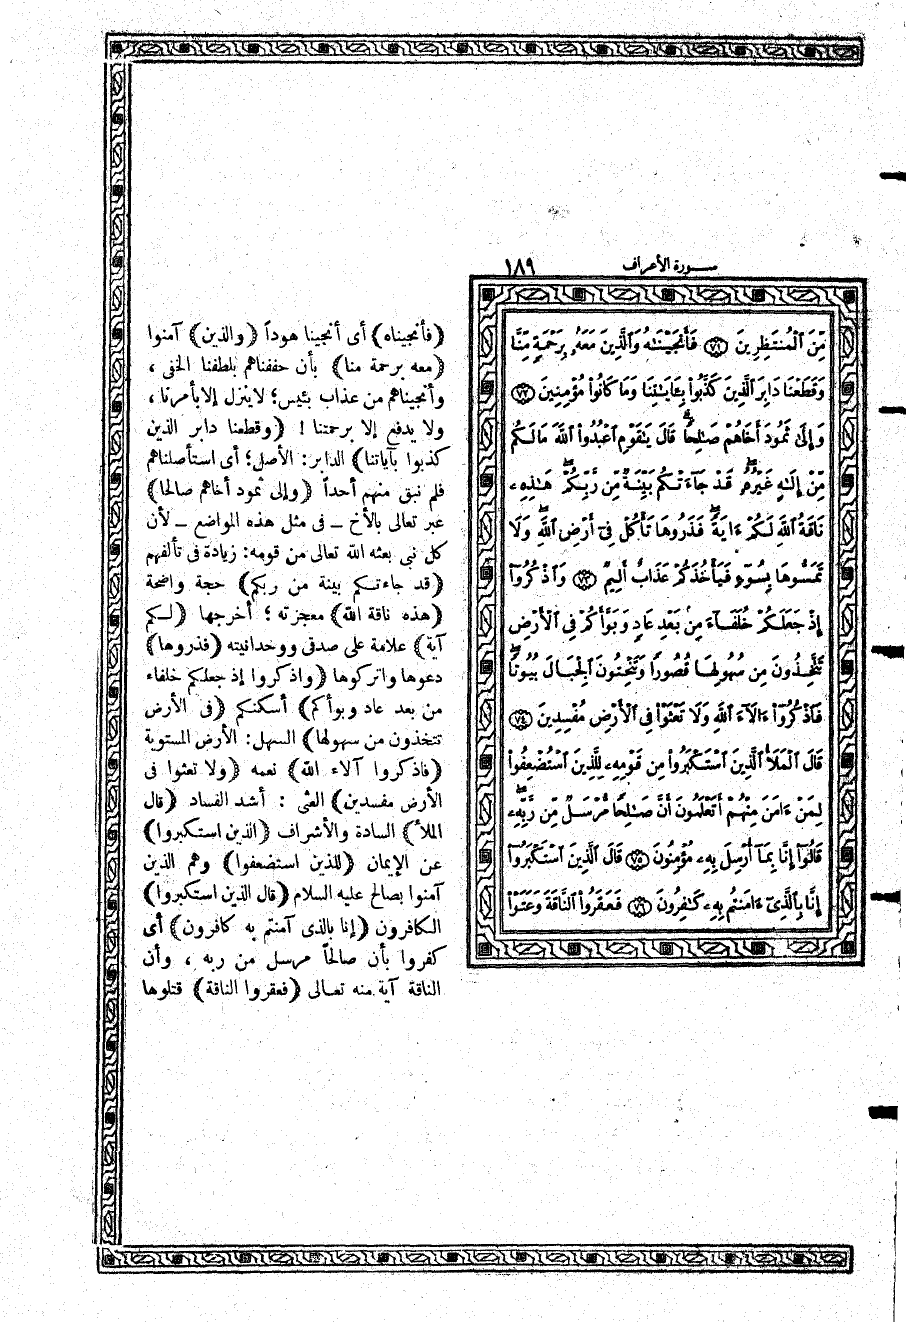 سورة الأعراف ١٨٩
مِّنَ ٱلْمُنتَظِرِينَ ﴿٧١﴾ فَأَنجَيْنَٰهُ وَٱلَّذِينَ مَعَهُۥ بِرَحْمَةٍ مِّنَّا
وَقَطَعْنَا دَابِرَ ٱلَّذِينَ كَذَّبُوا۟ بِـَٔايَٰتِنَا وَمَا كَانُوا۟ مُؤْمِنِينَ ﴿٧٢﴾
وَإِلَىٰ ثَمُودَ أَخَاهُمْ صَٰلِحًا ۗ قَالَ يَٰقَوْمِ ٱعْبُدُوا۟ ٱللَّهَ مَا لَكُم
مِّنْ إِلَٰهٍ غَيْرُهُۥ ۖ قَدْ جَآءَتْكُم بَيِّنَةٌ مِّن رَّبِّكُمْ ۖ هَٰذِهِۦ
نَاقَةُ ٱللَّهِ لَكُمْ ءَايَةً ۖ فَذَرُوهَا تَأْكُلْ فِىٓ أَرْضِ ٱللَّهِ ۖ وَلَا
تَمَسُّوهَا بِسُوٓءٍ فَيَأْخُذَكُمْ عَذَابٌ أَلِيمٌ ﴿٧٣﴾ وَٱذْكُرُوٓا۟
إِذْ جَعَلَكُمْ خُلَفَآءَ مِنۢ بَعْدِ عَادٍ وَبَوَّأَكُمْ فِى ٱلْأَرْضِ
تَتَّخِذُونَ مِن سُهُولِهَا قُصُورًا وَتَنْحِتُونَ ٱلْجِبَالَ بُيُوتًا ۖ
فَٱذْكُرُوٓا۟ ءَالَآءَ ٱللَّهِ وَلَا تَعْثَوْا۟ فِى ٱلْأَرْضِ مُفْسِدِينَ ﴿٧٤﴾
قَالَ ٱلْمَلَأُ ٱلَّذِينَ ٱسْتَكْبَرُوا۟ مِن قَوْمِهِۦ لِلَّذِينَ ٱسْتُضْعِفُوا۟
لِمَنْ ءَامَنَ مِنْهُمْ أَتَعْلَمُونَ أَنَّ صَٰلِحًا مُّرْسَلٌ مِّن رَّبِّهِۦ ۚ
قَالُوٓا۟ إِنَّا بِمَآ أُرْسِلَ بِهِۦ مُؤْمِنُونَ ﴿٧٥﴾ قَالَ ٱلَّذِينَ ٱسْتَكْبَرُوٓا۟
إِنَّا بِٱلَّذِىٓ ءَامَنتُم بِهِۦ كَٰفِرُونَ ﴿٧٦﴾ فَعَقَرُوا۟ ٱلنَّاقَةَ وَعَتَوْا۟
(فأنجيناه) أى أنجينا هوداً (والذين) آمنوا
(معه برحمة منا) بأن حففناهم بلطفنا الخفى ،
وأنجيناهم من عذاب بئيس؛ لاينزل إلا بأمرنا ،
ولا يدفع إلا برحمتنا ! (وقطعنا دابر الذين
كذبوا بآياتنا) الدابر: الأصل؛ أى استأصلناهم
فلم نبق منهم أحداً (وإلى ثمود أخاهم صالحا)
عبر تعالى بالأخ ــ فى مثل هذه المواضع ــ لأن
كل نبى بعثه الله تعالى من قومه: زيادة فى تألفهم
(قد جاءتكم بينة من ربكم) حجة واضحة
(هذه ناقة الله) معجزته ؛ أخرجها (لكم
آية) علامة على صدقى ووحدانيته (فذروها)
دعوها واتركوها (واذكروا إذ جعلكم خلفاء
من بعد عاد وبوأكم) أسكنكم (فى الأرض
تتخذون من سهولها) السهل: الأرض المستوية
(فاذكروا آلاء الله) نعمه (ولا تعثوا فى
الأرض مفسدين) العثى : أشد الفساد (قال
الملأ) السادة والأشراف (الذين استكبروا)
عن الإيمان (للذين استضعفوا) وهم الذين
آمنوا بصالح عليه السلام (قال الذين استكبروا)
الكافرون (إنا بالذى آمنتم به كافرون) أى
كفروا بأن صالحاً مرسل من ربه ، وأن
الناقة آية منه تعالى (فعقروا الناقة) قتلوها